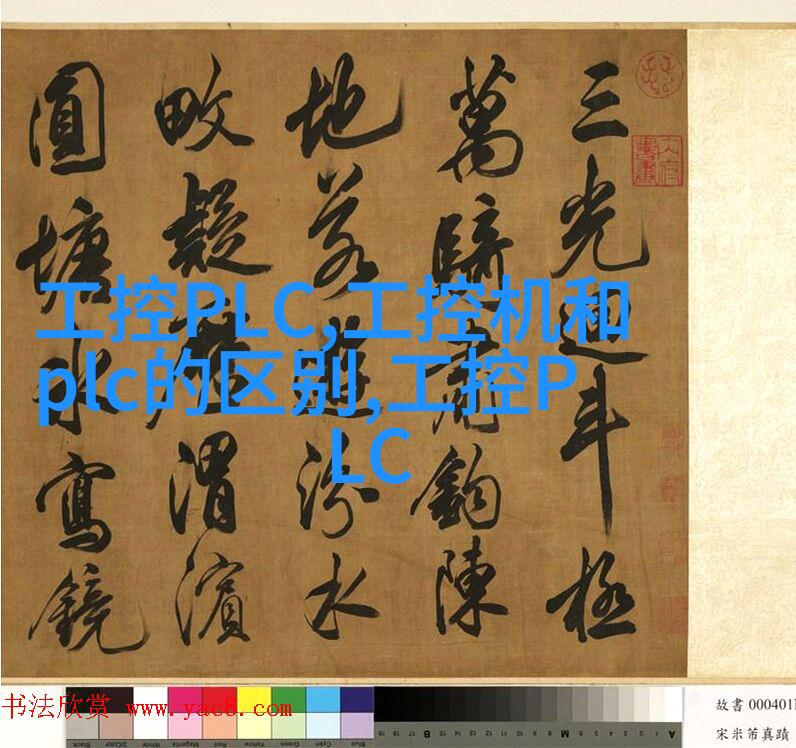 三光迴斗極
萬騎肅鈎陳
地若遊汾水
畋疑歷渭濱
圓塘水寫鏡
工控PLC,工控机和
plc的区别,工控P
LC
书法欣赏 www.yac8.com
故書 000401
宋米芾真蹟